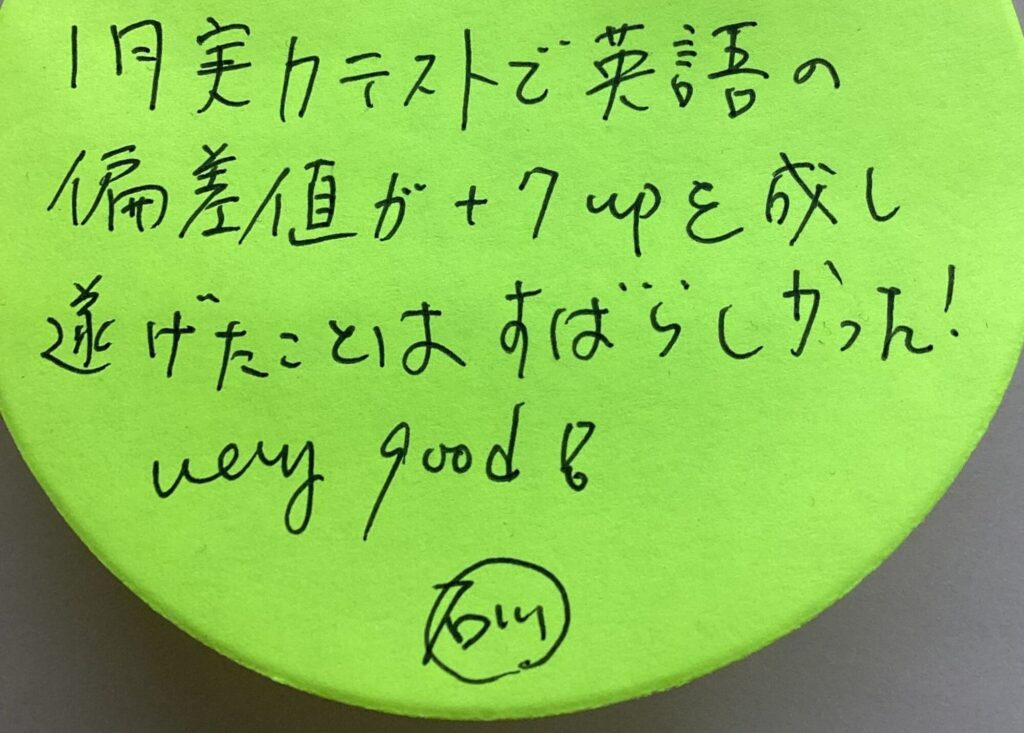 1月実力テストで英語の
偏差値が+7upを成し
遂げたことはすばらしかった!
very good
石川